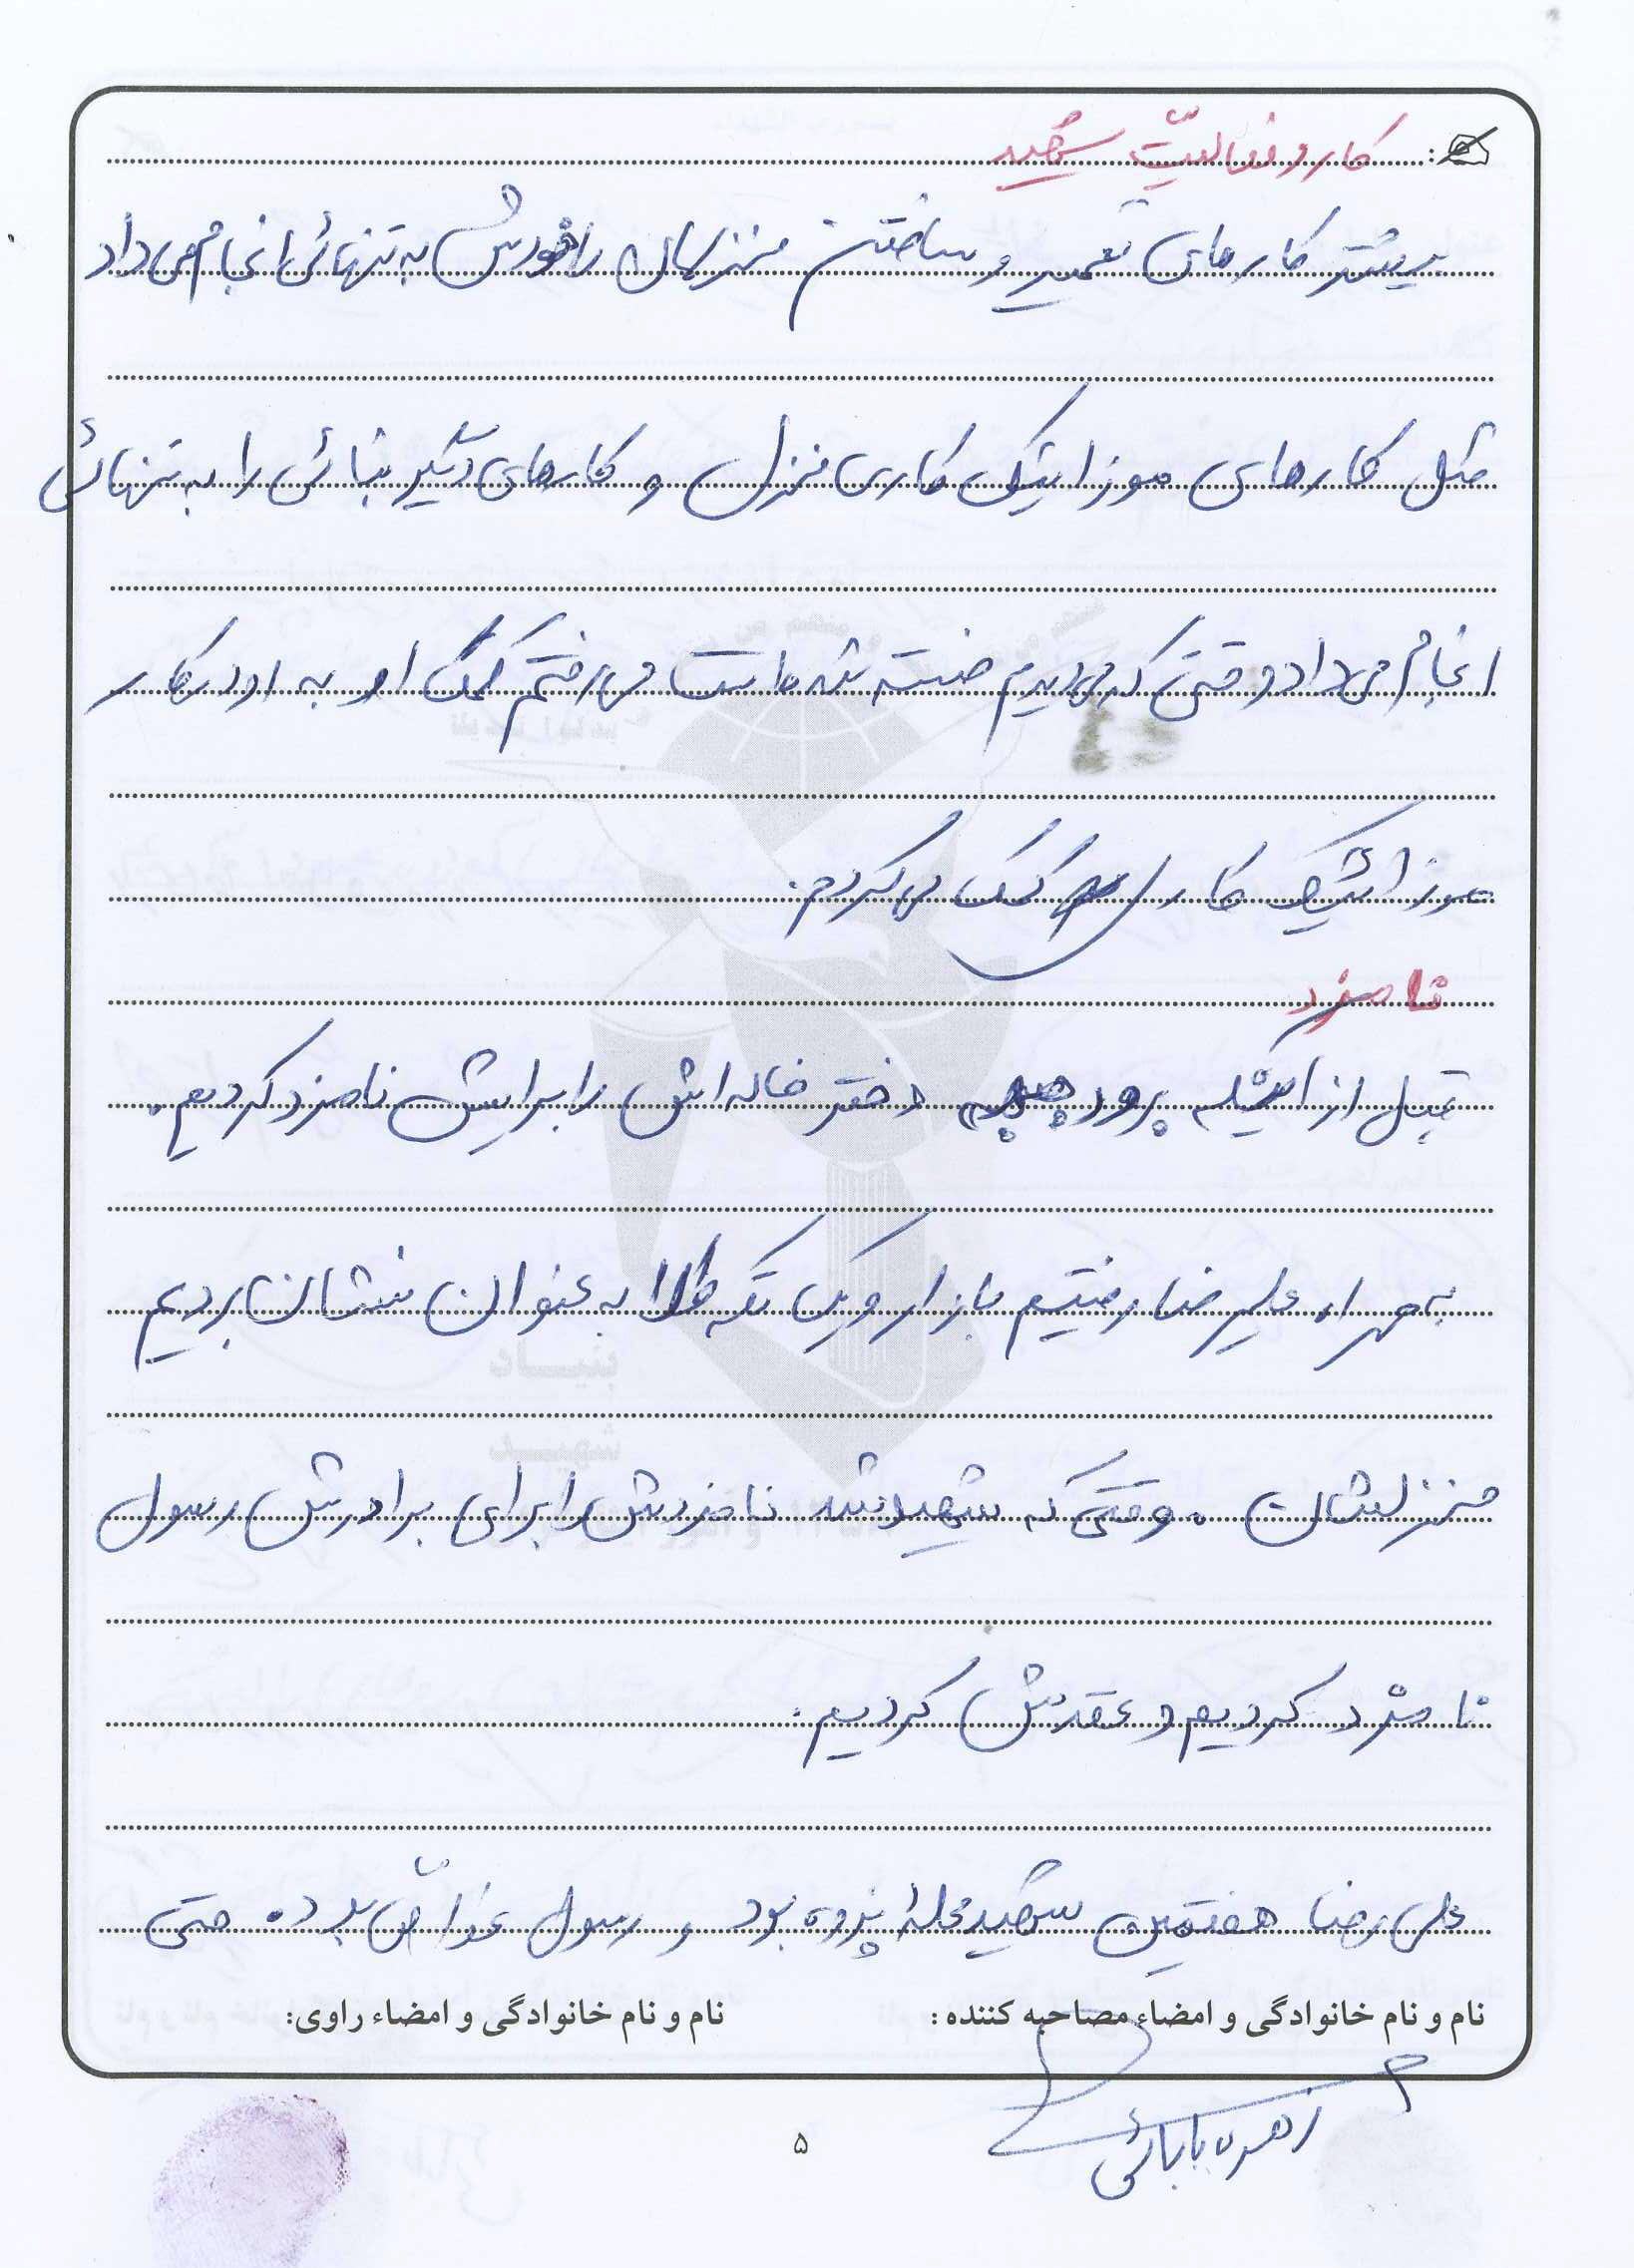 کار و فعالیّت شهید
بیشتر کارهای تعمیر و ساختن منزلمان را خودش به تنهائی انجام می داد
مثل کارهای موزائیک کاری منزل و کارهای دیگر بنائی را به تنهائی
انجام می داد وقتی که می دیدم خسته شده است می رفتم کمک او به او در کار
موزائیک کاری کمک می کردم.
نامزد
قبل از اینکه برود جبهه دختر خاله اش را برایش نامزد کردیم.
به همراه علیرضا رفتیم بازار و یک تکه طلا به عنوان نشان بردیم
منزلشان . وقتی که شهید شد نامزدش را برای برادرش رسول
نامزد کردیم و عقدش کردیم.
علی رضا هفتمین شهید محلهٔ پزوه بود و رسول غوّاص بوده حتی
نام و نام خانوادگی و امضاء مصاحبه کننده :
نام و نام خانوادگی و امضاء راوی:
زهره بابائی
۵
بنیاد
شهید